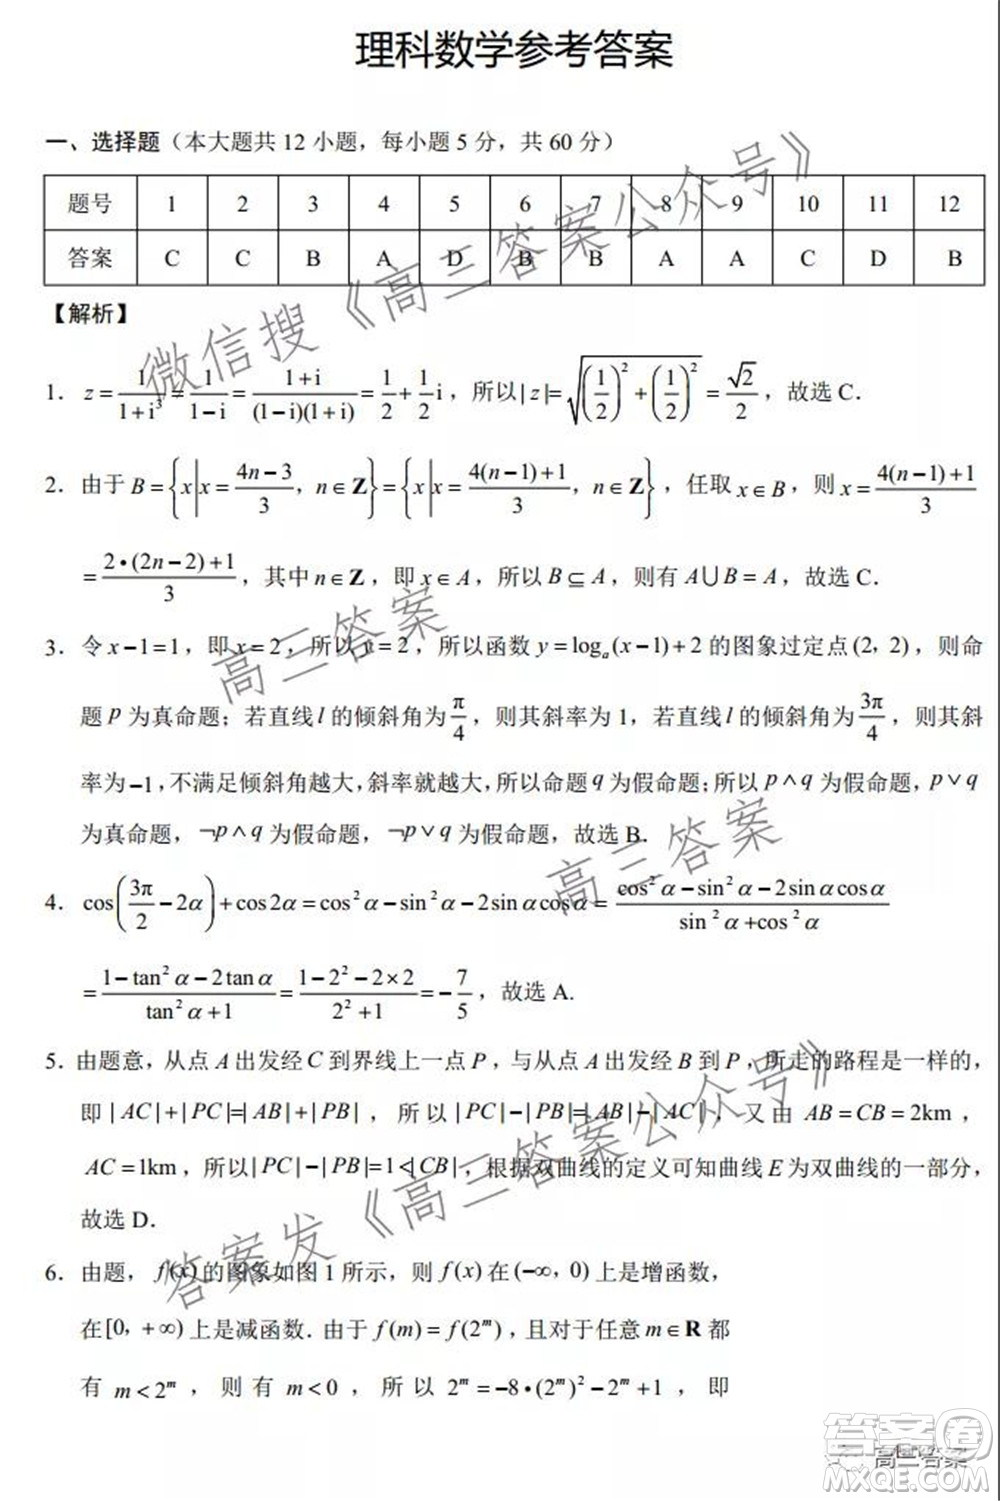 理科数学参考答案
一、选择题（本大题共 12 小题，每小题 5 分，共 60 分）
题号 1 2 3 4 5 6 7 8 9 10 11 12
答案 C C B A D B B A A C D B
【解析】
1．z = 1/(1+i³) = 1/(1−i) = (1+i)/((1−i)(1+i)) = 1/2 + 1/2 i，所以|z|=√((1/2)²+(1/2)²) = √2/2，故选 C．
2．由于 B={x|x=(4n−3)/3，n∈Z}={x|x=(4(n−1)+1)/3，n∈Z}，任取 x∈B，则 x=(4(n−1)+1)/3
=(2•(2n−2)+1)/3，其中 n∈Z，即 x∈A，所以 B⊆A，则有 A∪B=A，故选 C．
3．令 x−1=1，即 x=2，所以 y=2，所以函数 y=logₐ(x−1)+2 的图象过定点(2，2)，则命
题 p 为真命题；若直线 l 的倾斜角为 π/4，则其斜率为 1，若直线 l 的倾斜角为 3π/4，则其斜
率为−1，不满足倾斜角越大，斜率就越大，所以命题 q 为假命题；所以 p∧q 为假命题，p∨q
为真命题，¬p∧q 为假命题，¬p∨q 为假命题，故选 B．
4．cos(3π/2−2α)+cos2α=cos²α−sin²α−2sinαcosα=(cos²α−sin²α−2sinαcosα)/(sin²α+cos²α)
=(1−tan²α−2tanα)/(tan²α+1)=(1−2²−2×2)/(2²+1)=−7/5，故选 A.
5．由题意，从点 A 出发经 C 到界线上一点 P，与从点 A 出发经 B 到 P，所走的路程是一样的，
即|AC|+|PC|=|AB|+|PB|，所以|PC|−|PB|=|AB|−|AC|，又由 AB=CB=2km，
AC=1km，所以|PC|−|PB|=1<|CB|，根据双曲线的定义可知曲线 E 为双曲线的一部分，
故选 D．
6．由题，f(x)的图象如图 1 所示，则 f(x)在(−∞，0)上是增函数，
在[0，+∞)上是减函数．由于 f(m)=f(2ᵐ)，且对于任意 m∈R 都
有 m<2ᵐ，则有 m<0，所以 2ᵐ=−8•(2ᵐ)²−2ᵐ+1，即
微信搜《高三答案公众号》
高三答案
高三答案
答案发《高三答案公众号》
高三答案
答案卷
MXQE.COM